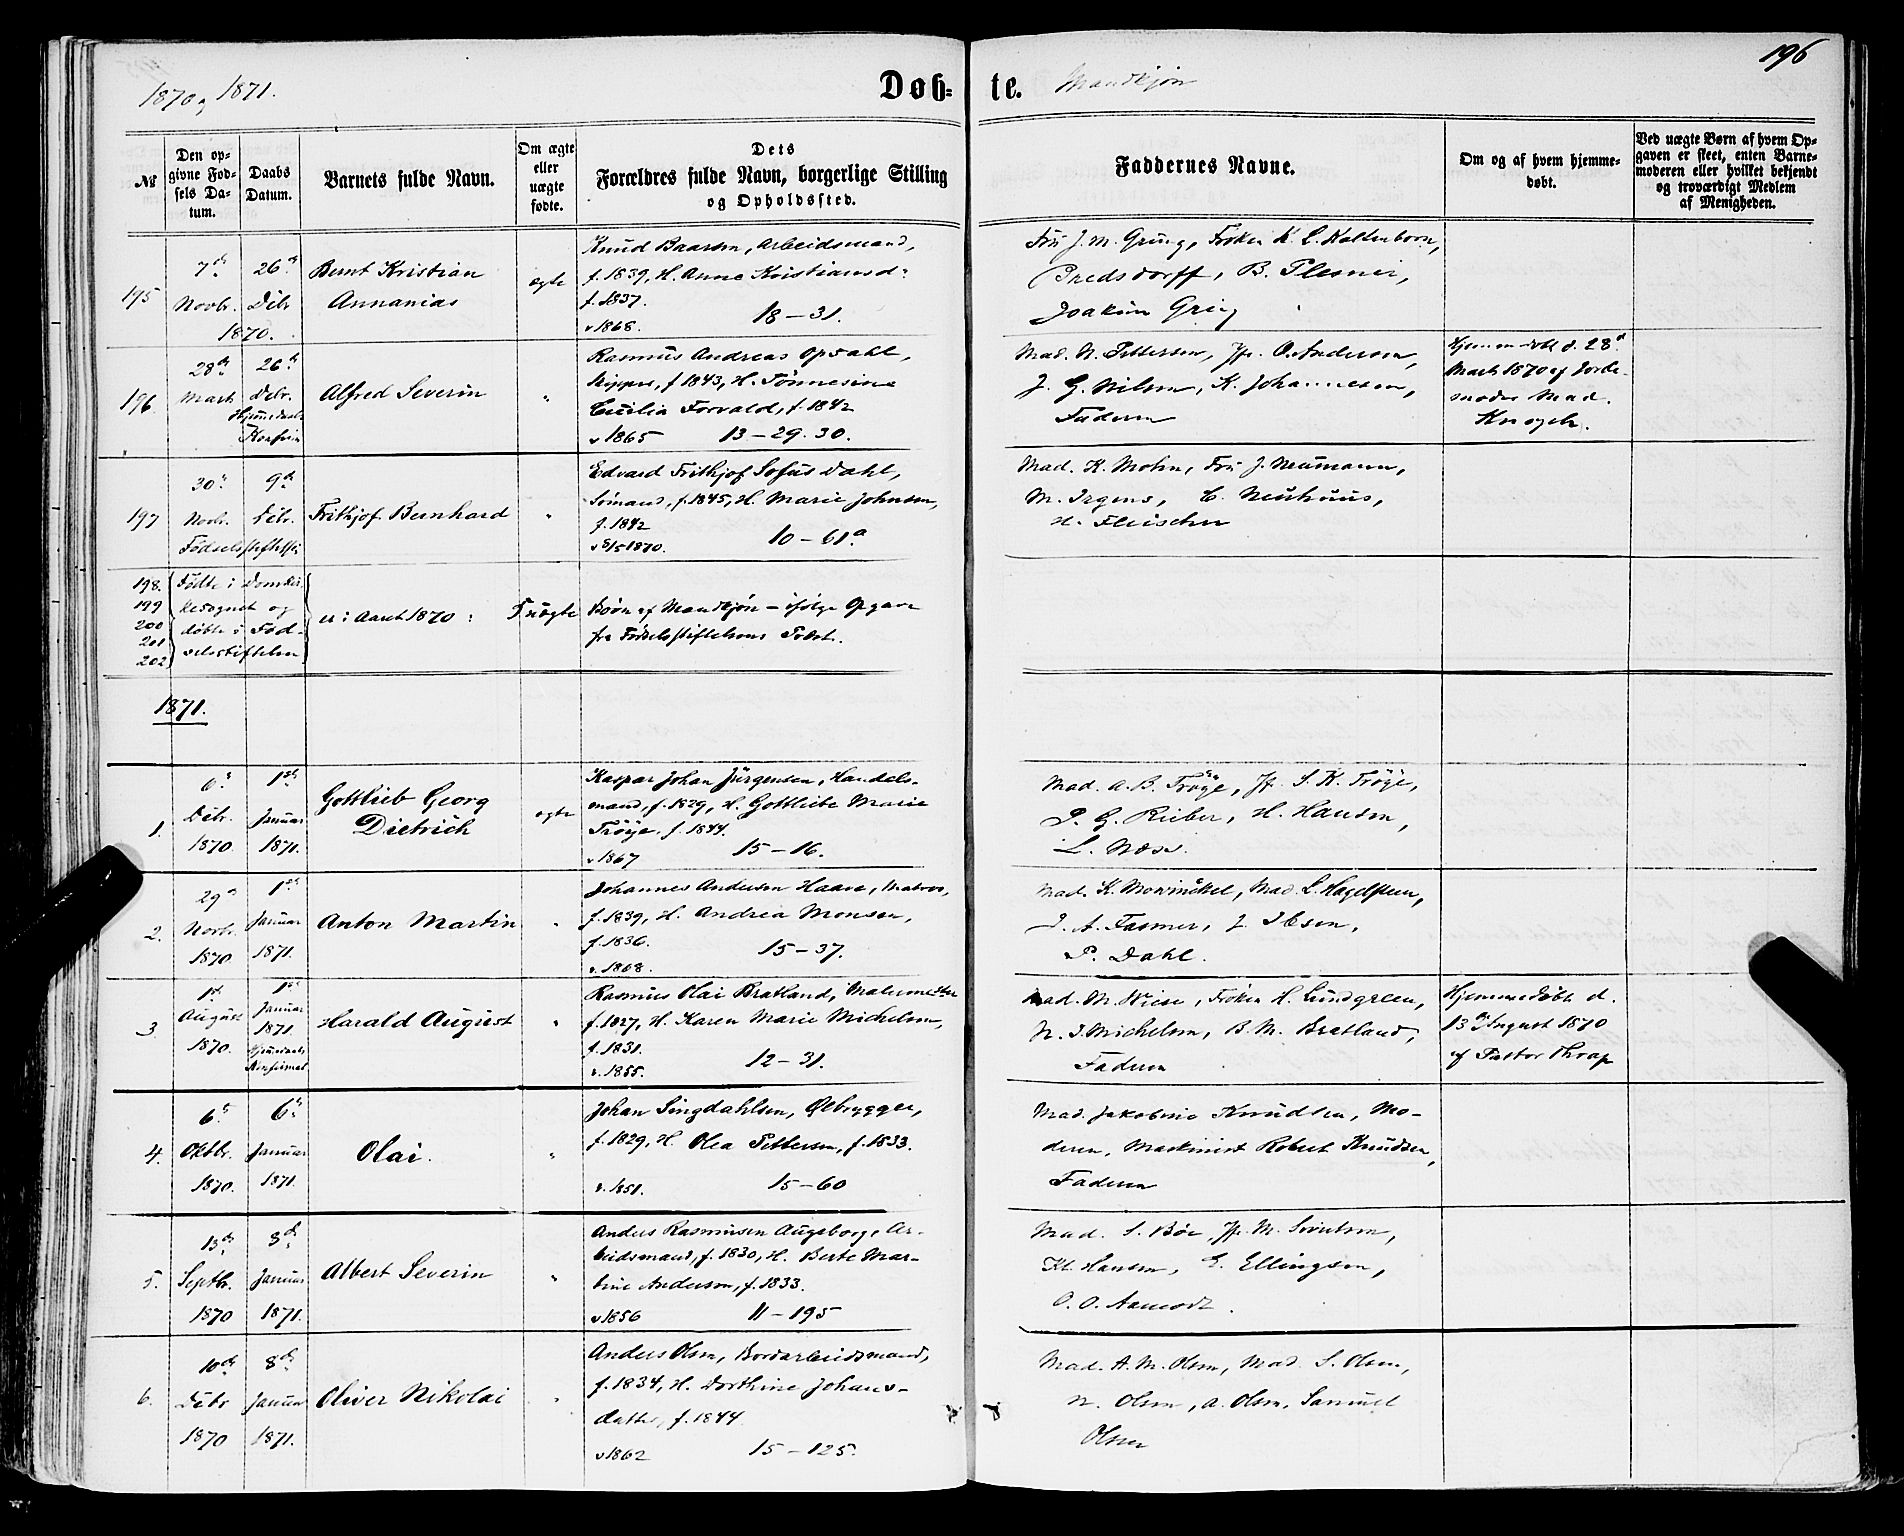 1870 og 1871.
Døb- te. Mandkjøn
196
No
Den op-
givne Fød-
sels Da-
tum.
Daabs
Datum.
Barnets fulde Navn.
Om ægte
eller
uægte
fødte.
Dets
Forældres fulde Navn, borgerlige Stilling
og Opholdssted.
Faddernes Navne.
Om og af hvem hjemme-
døbt.
Ved uægte Børn af hvem Op-
gaven er skeet, enten Barne-
moderen eller hvilket bekjendt
og troværdigt Medlem
af Menigheden.
195
7de
Novbr.
26de
Debr
1870.
Bernt Kristian
Annanias
ægte
Knud Baarsen, Arbeidsmand,
f. 1839, H. Anne Kristiansd:
f. 1837.
v 1868. 18-31.
Fru J. M. Grieg, Frøken K. L. Kaltenborn,
Bredsdorff, B. Plesner,
Joakim Grieg
196.
28de
Marts
26de
Debr.
Hjemmedøbts
Konfirm
Alfred Severin
"
Rasmus Andreas Opdahl,
Skipper, f. 1843, H. Tønnesine
Cecilia Forvald, f. 1842
v 1865 13-29.30.
Mad. N. Pettersen, Jfr. O. Andersen,
J. G. Nilsen, K. Johannesen,
Faderen
Hjemmedøbt d. 28de
Marts 1870 af Jorde-
moder Mad.
Knoph.
197
30te
Novbr.
9de
Debr.
Fødselsstiftelsen
Frithjof Bernhard
"
Edvard Frithjof Sofus Dahl,
Sømand, f. 1845, H. Marie Johnsen,
f. 1842
v 8/5 1870. 10-61a
Mad. K. Mohn, Fru J. Neumann,
M. Irgens, C. Neuhuus,
H. Fleischer
198.
199
200
201
202
Fødte i Domkir
kesognet og
døbte i Fød-
selsstiftelsen
er i Aaret 1870: 5 uægte Børn af Mandkjøn – ifølge Opgave
fra Fødselsstiftelsens Præst.
1871.
1.
6te
Debr.
1870.
1ste
Januar
1871.
Gottlieb Georg
Dietrich
ægte
Kaspar Johan Jürgensen, Handels-
mand, f. 1829, H. Gottliebe Marie
Trøye, f. 1844.
v 1867 15-16.
Mad. A. B. Trøye, Jfr. S. K. Trøye,
P. G. Rieber, H. Hansen,
L. Næse.
2.
29de
Novbr.
1870.
1ste
Januar
1871.
Anton Martin
"
Johannes Andersen Haave, Matros,
f. 1839, H. Andrea Monsen,
f. 1836.
v. 1868. 15-37.
Mad. K. Mowinckel, Mad. L. Hagelsteen,
J. A. Fasmer, J. Ibsen,
P. Dahl.
3
1ste
August
1870.
1ste
Januar
1871
Hjemmedøbts
Konfirmat
Harald August
"
Rasmus Olai Bratland, Malermester
f. 1827, H. Karen Marie Michelsen,
f. 1831.
v. 1855. 12-31.
Mad. M. Wiese, Frøken H. Lundgreen,
N. J. Michelsen, B. M. Bratland,
Faderen
Hjemmedøbt d.
13de August 1870
af Pastor Thrap
4.
6te
Oktbr.
1870.
6te
Januar
1871.
Olai.
"
Johan Lingdahlsen, Ølbrygger,
f. 1829, H. Olea Pettersen, f. 1833.
v. 1851. 15-60
Mad. Jakobine Knudsen, Mo-
deren, Maskinist Robert Knudsen,
Faderen
5.
13de
Septbr.
1870
8de
Januar
1871.
Albert Severin
"
Anders Rasmusen Augsborg, Ar-
beidsmand, f. 1830, H. Berte Mar-
tine Andersen, f. 1833.
v 1856 11-195
Mad. S. Bøe, Jfr. M. Sivertsen,
Kl. Hansen, E. Ellingsen,
O. O. Aamodt.
6.
10de
Debr
1870
8de
Januar
1871.
Oliver Nikolai
"
Anders Olsen, Bordarbeidsmand,
f. 1834, H. Dorthine Johans-
datter, f. 1844.
v 1862 15-125.
Mad. A. M. Olsen, Mad. S. Olsen,
N. Olsen, A. Olsen, Samuel
Olsen